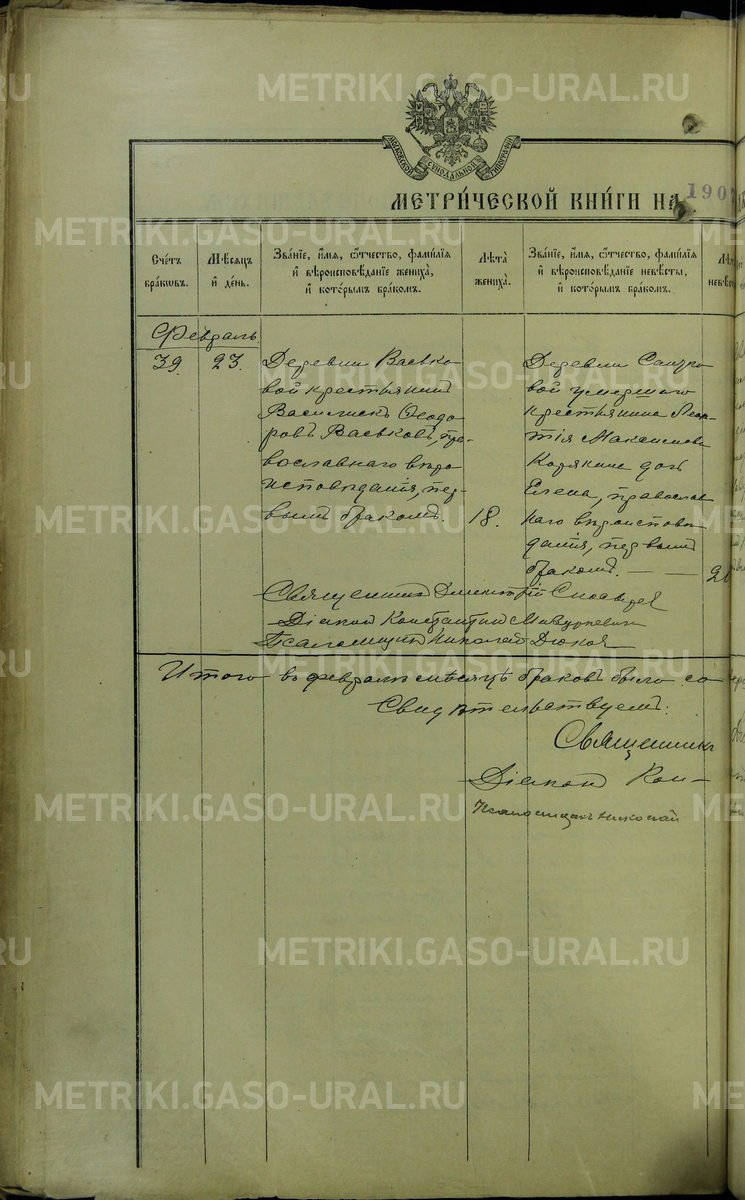 METRIKI.GASO-URAL.RU
МОСКОВСКОЙ СѴНОДАЛЬНОЙ ТИПОГРАФІИ
МЕТРИ́ЧЕСКОЙ КНИ́ГИ НА 190
Сче́тъ бра́ковъ.
Мѣ́сяцъ и҆ де́нь.
Зва́ніе, и҆́мя, ѻ҆́тчество, фами́лія и҆ вѣроисповѣ́даніе жениха̀, и҆ кото́рымъ бра́комъ.
Лѣ́та жениха̀.
Зва́ніе, и҆́мя, ѻ҆́тчество, фами́лія и҆ вѣроисповѣ́даніе невѣ́сты, и҆ кото́рымъ бра́комъ.
Февраль
39. 23.
Деревни Ваевко-
вой крестьянинъ
Василискъ Ѳеодо-
ровъ Ваевковъ, пра-
вославнаго вѣро
исповѣданія, пер-
вымъ бракомъ.
18.
Деревни
вой умершаго
крестьянина
тія Максимова
Корякина дочь
Елена, православ
наго вѣроисповѣ
данія, первымъ
бракомъ.
20
Священникъ Димитрій
Діаконъ Константинъ
Псаломщикъ Николай Дюковъ
Итого въ февралѣ мѣсяцѣ браковъ было со
Свидѣтельствуемъ:
Священникъ
Діаконъ Кон-
Псаломщикъ Николай